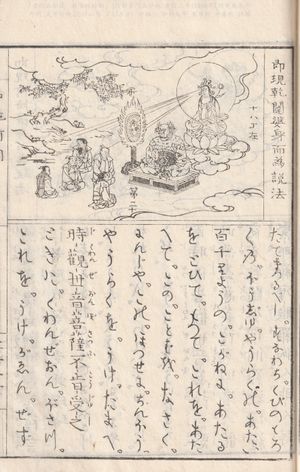 即現乾闥婆身而為説法
十八丁在
たてまつるべし。すなわちくびのもろ
くの。ほうしゆやうらくの。あたひ
百千りようの。こがねに。あたる
をときて。もつて。これを。あた
へて。このことばを。なさく。
にんじやこの。ほつせの。ちんほう
やうらくを。うけ。たまへ。
時觀世音菩薩不肯受之
ときに。くわんせおん。ぼさつ。
これを。うけ。がゑん。せず